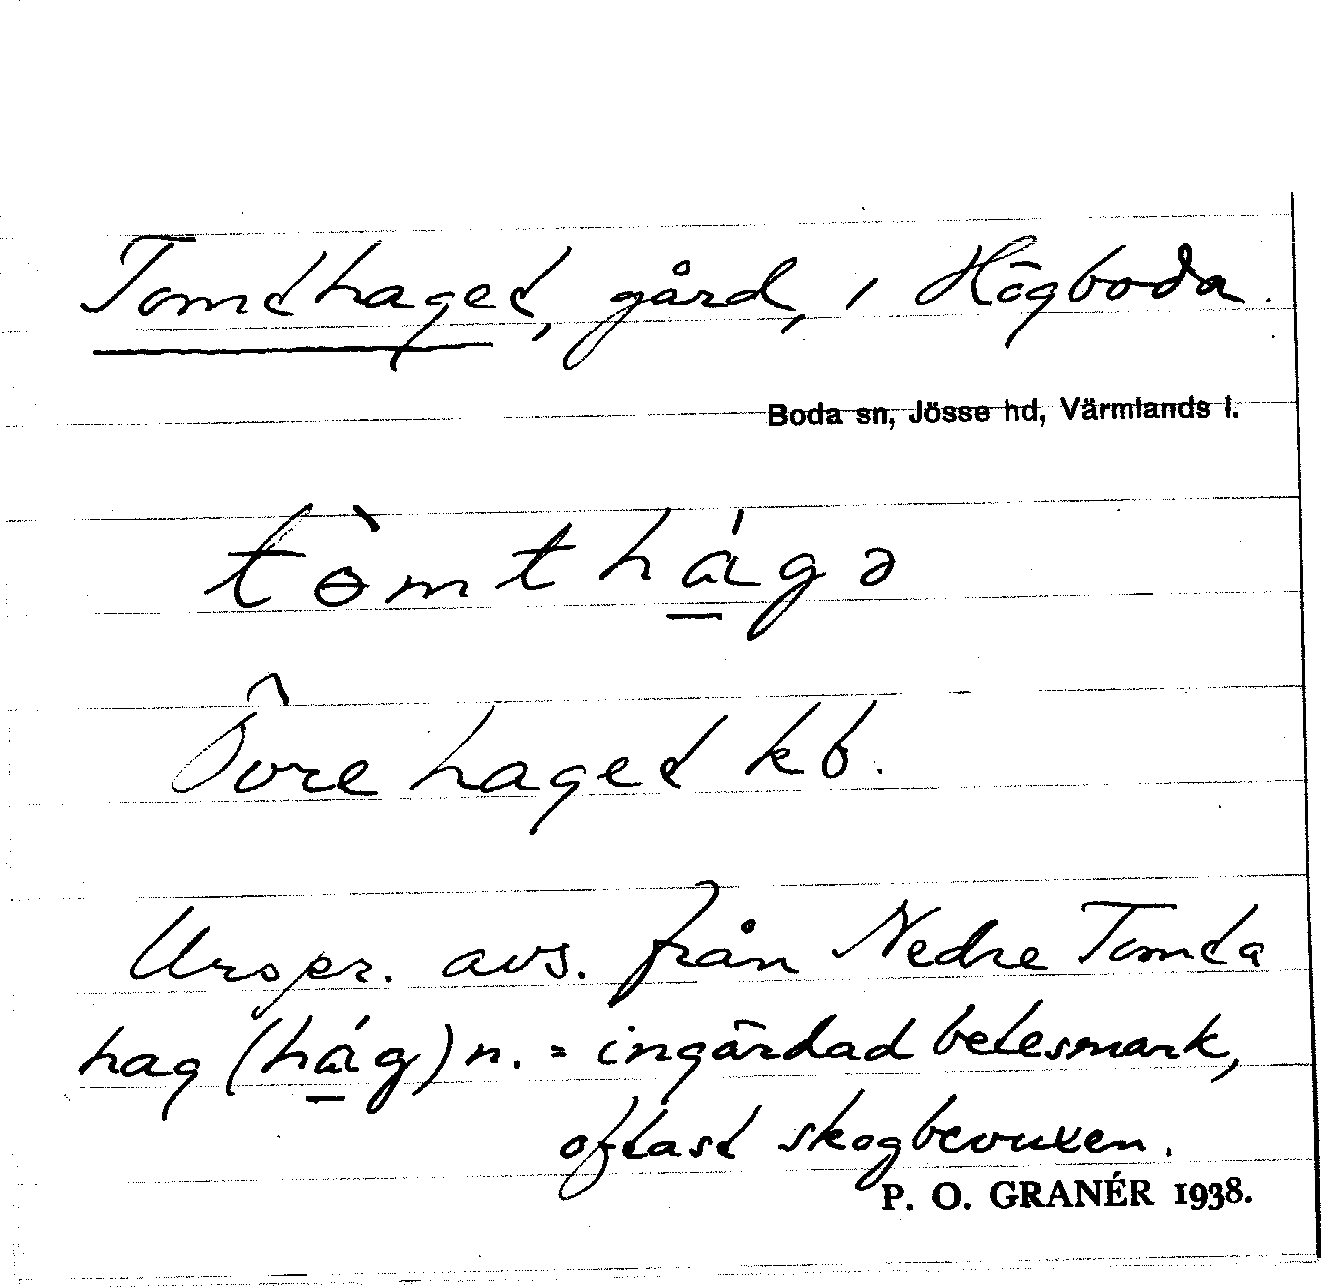 Tomthaget, gård, i Högboda.
Boda sn, Jösse hd, Värmlands l.
tɵ̀mthágə
Övre haget kb.
Urspr. avs. från Nedre Tomta
hag (hág) n. = ingärdad betesmark,
oftast skogbevuxen.
P. O. GRANÉR 1938.